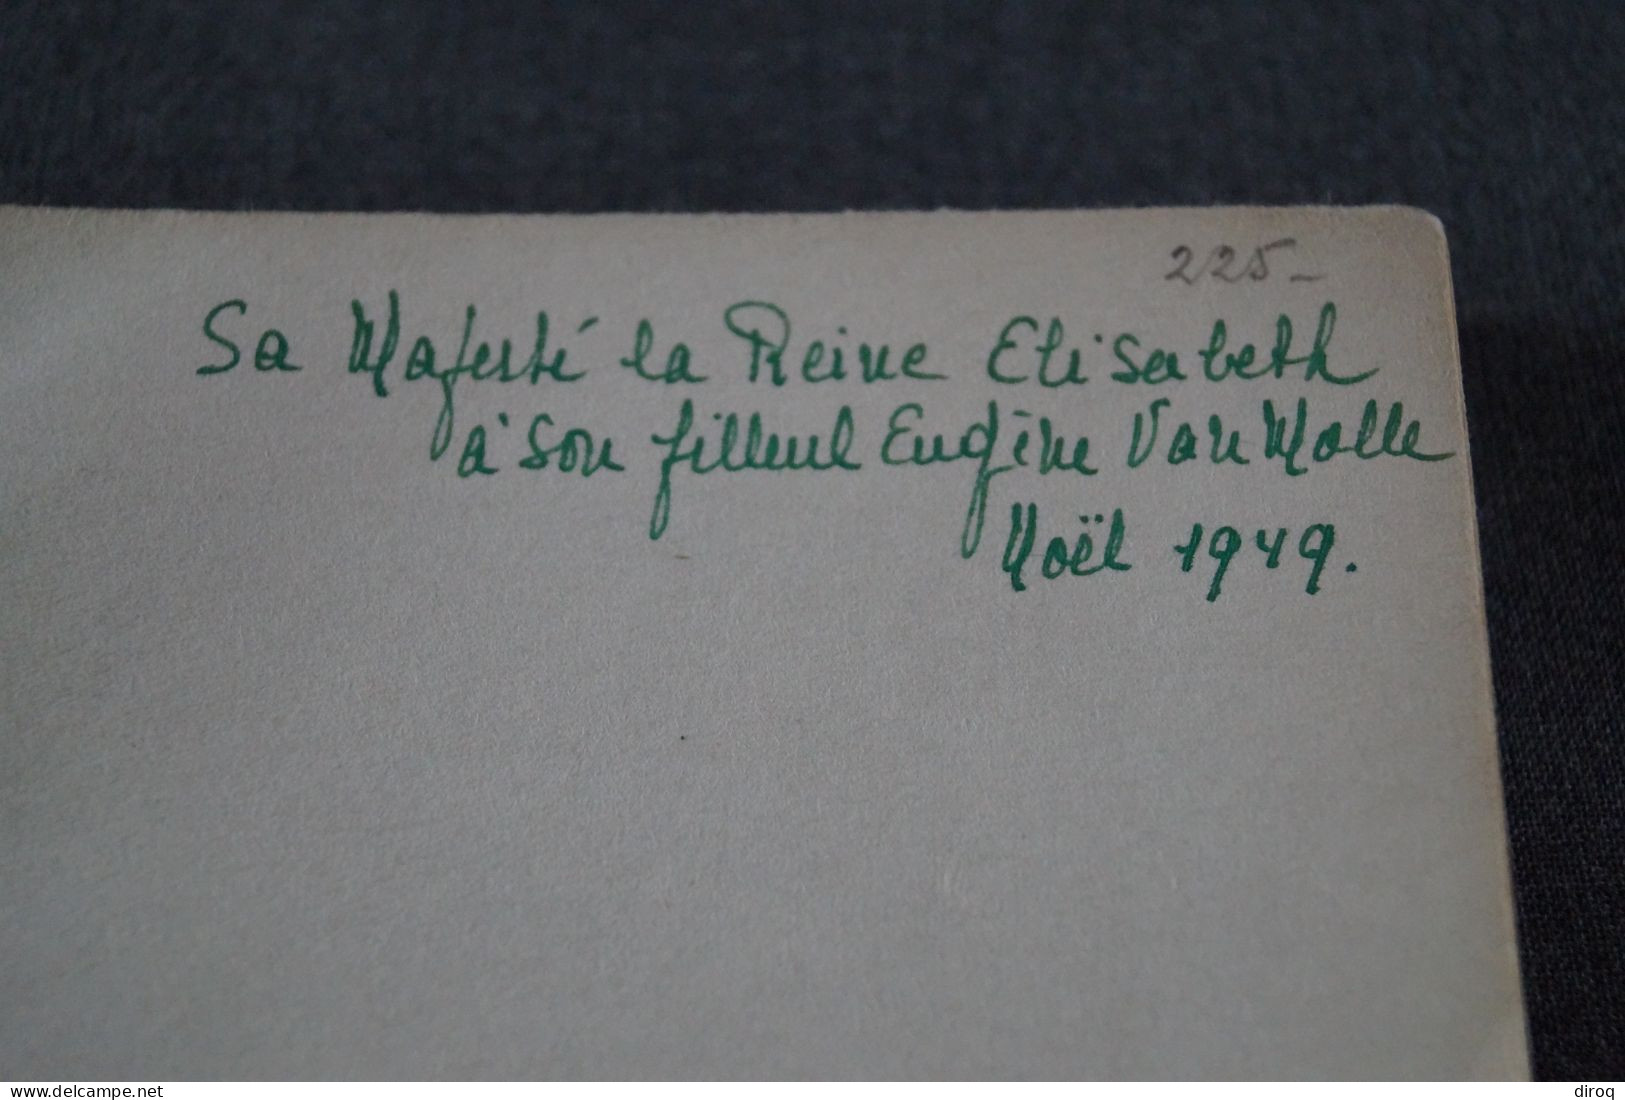 225-
Sa Majesté la Reine Elisabeth
à son filleul Eugène Van Malle
Noël 1949.
delcampe.net
diroq